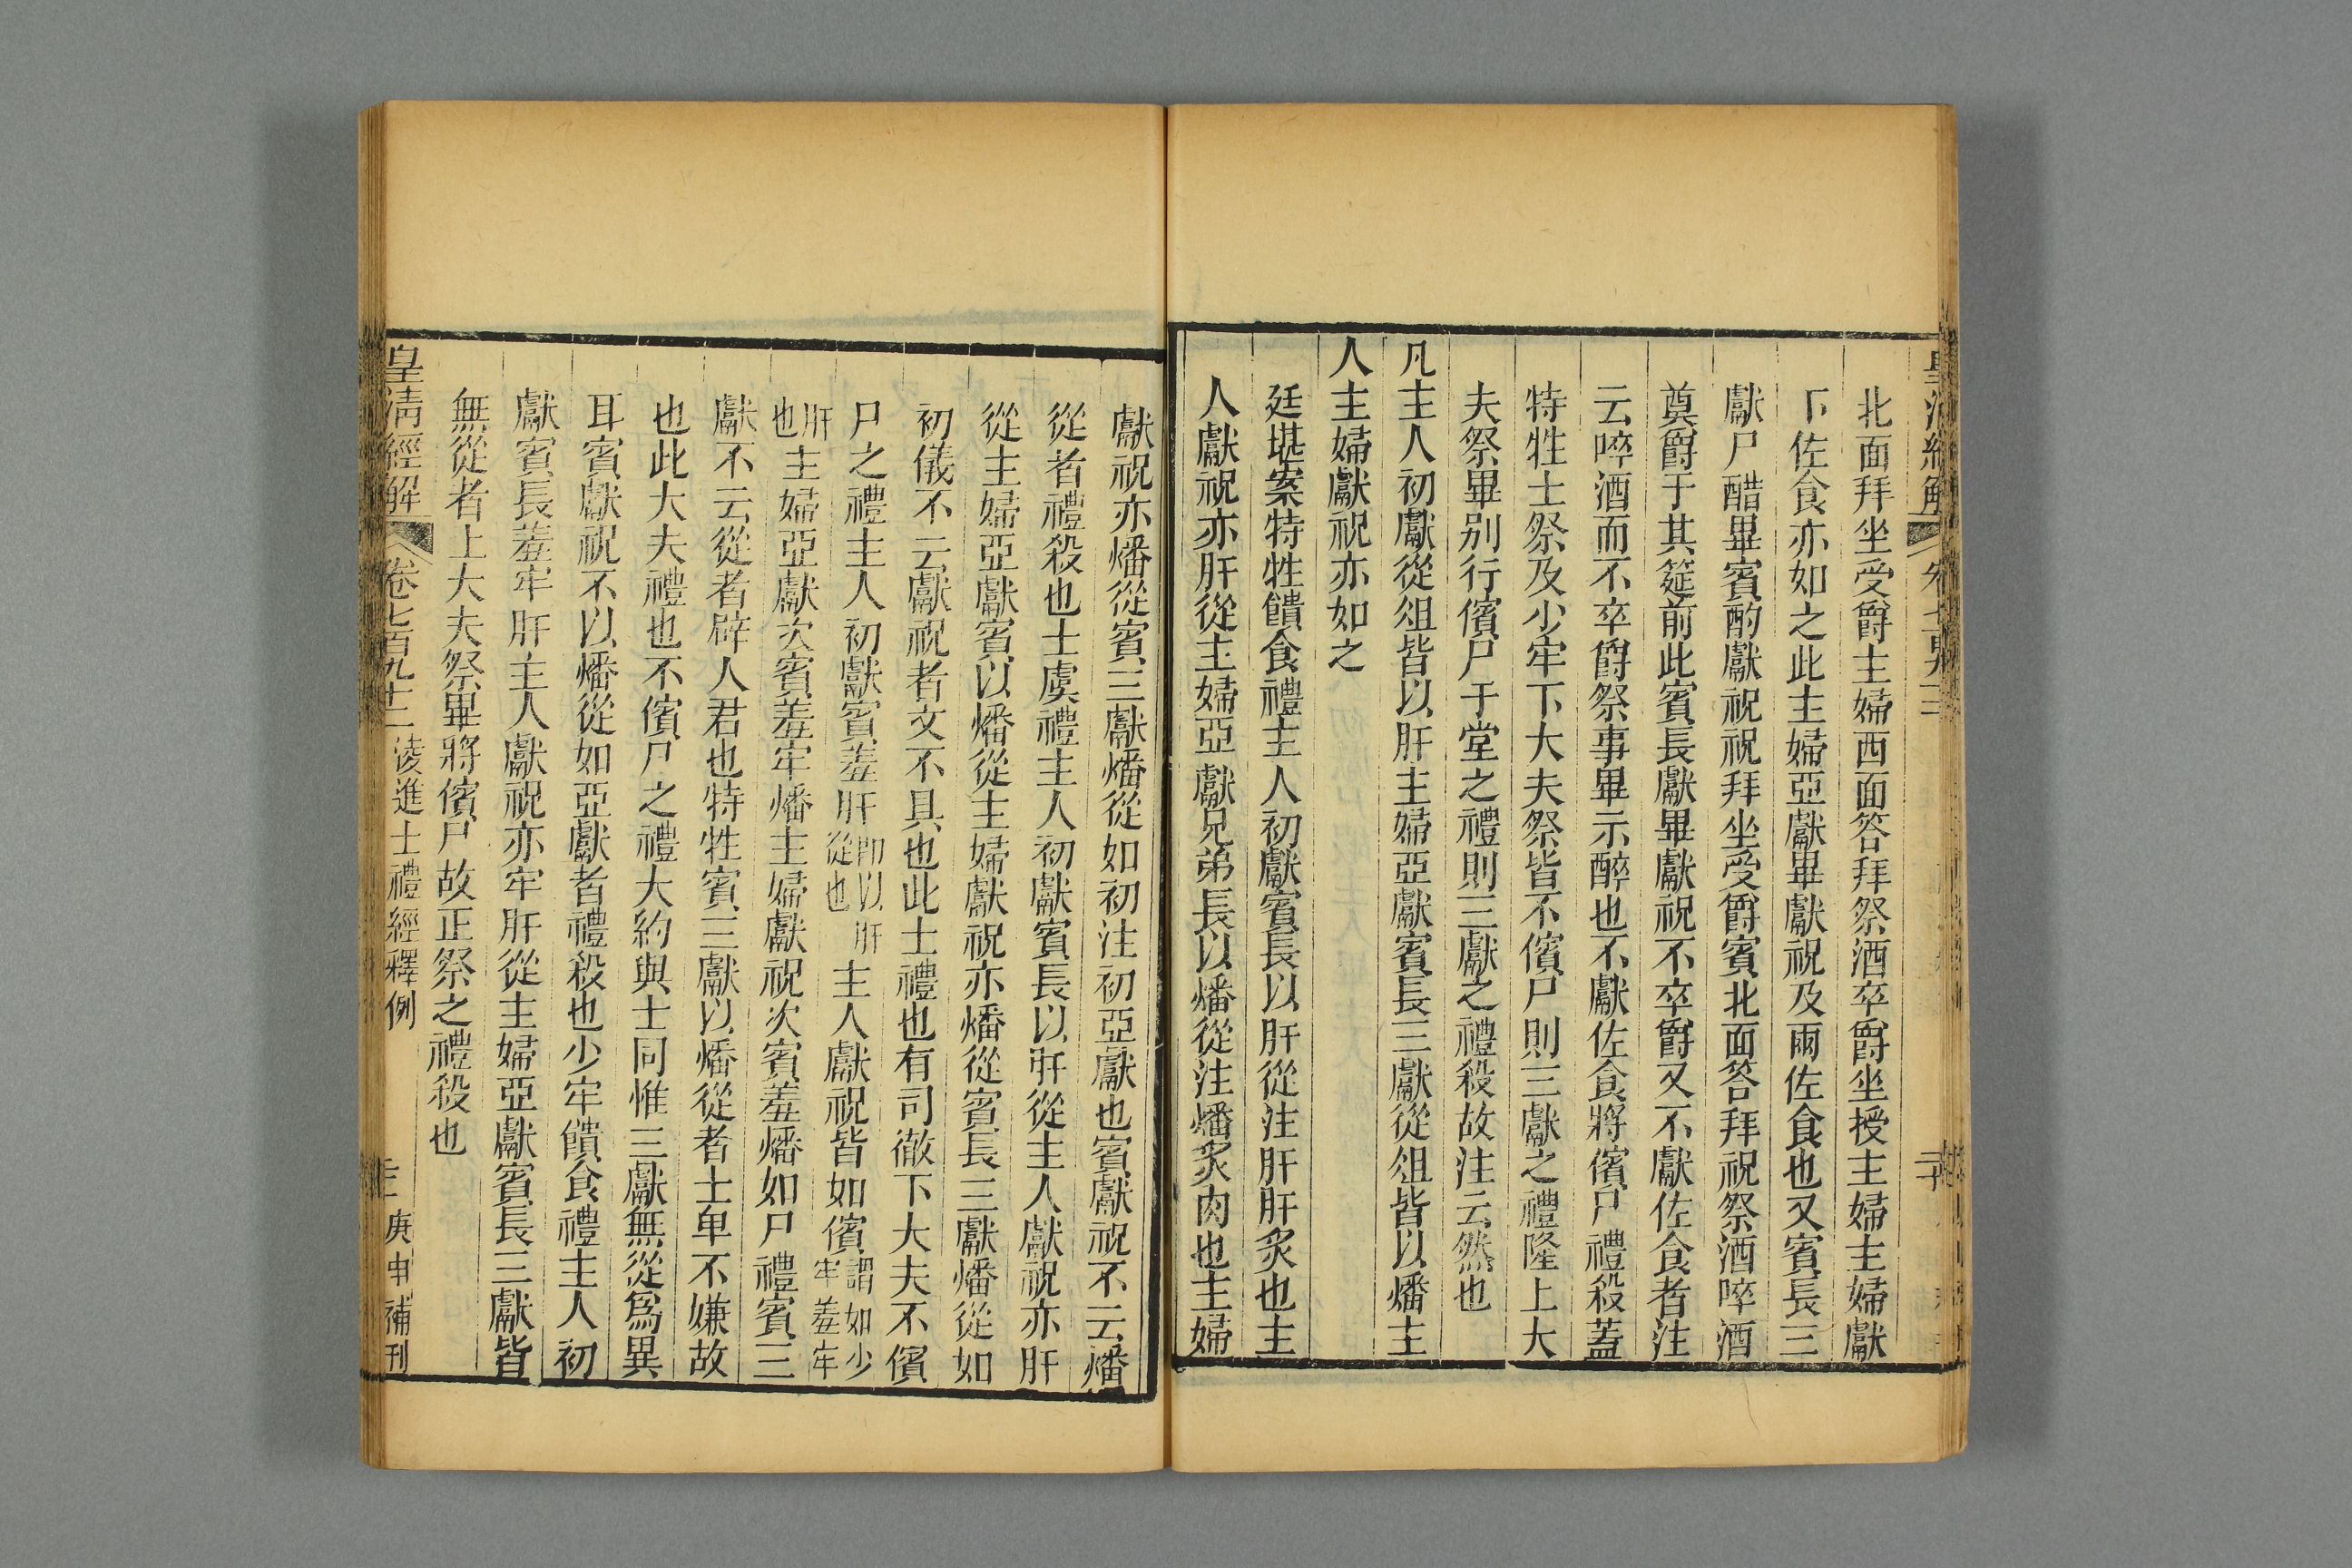 北面拜坐受爵主婦西面答拜祭酒卒爵坐授主婦主婦獻
下佐食亦如之此主婦亞獻畢獻祝及兩佐食也又賓長三
獻尸醋畢賓酌獻祝祝拜坐受爵賓北面答拜祝祭酒啐酒
奠爵于其筵前此賓長獻畢獻祝不卒爵又不獻佐食者注
云啐酒而不卒爵祭事畢示醉也不獻佐食將儐尸禮殺蓋
特牲士祭及少牢下大夫祭皆不儐尸則三獻之禮隆上大
夫祭畢别行儐尸于堂之禮則三獻之禮殺故注云然也
凡主人初獻從俎皆以肝主婦亞獻賓長三獻從俎皆以燔主
人主婦獻祝亦如之
廷堪案特牲饋食禮主人初獻賓長以肝從注肝肝炙也主
人獻祝亦肝從主婦亞獻兄弟長以燔從注燔炙肉也主婦
獻祝亦燔從賓三獻燔從如初注初亞獻也賓獻祝不云燔
從者禮殺也士虞禮主人初獻賓長以肝從主人獻祝亦肝
從主婦亞獻賓以燔從主婦獻祝亦燔從賓長三獻燔從如
初儀不云獻祝者文不具也此士禮也有司徹下大夫不儐
尸之禮主人初獻賓羞肝即以肝從也主人獻祝皆如儐謂如少牢羞牢
肝也主婦亞獻次賓羞牢燔主婦獻祝次賓羞燔如尸禮賓三
獻不云從者辟人君也特牲賓三獻以燔從者士卑不嫌故
也此大夫禮也不儐尸之禮大約與士同惟三獻無從爲異
耳賓獻祝不以燔從如亞獻者禮殺也少牢饋食禮主人初
獻賓長羞牢肝主人獻祝亦牢肝從主婦亞獻賓長三獻皆
無從者上大夫祭畢將儐尸故正祭之禮殺也
皇清經解 卷七百九十二 淩進士禮經釋例 庚申補刊